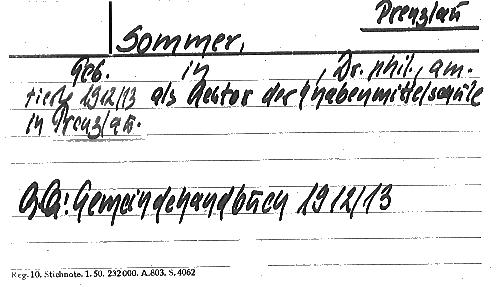 Prenzlau
Sommer,
Geb. in , Dr. phil., am-
tierte 1912/13 als Rektor der Knabenmittelschule
in Prenzlau.
Gemeindehandbuch 1912/13
Reg. 10. Stichnote. 1. 50. 232000. A.803. S. 4062